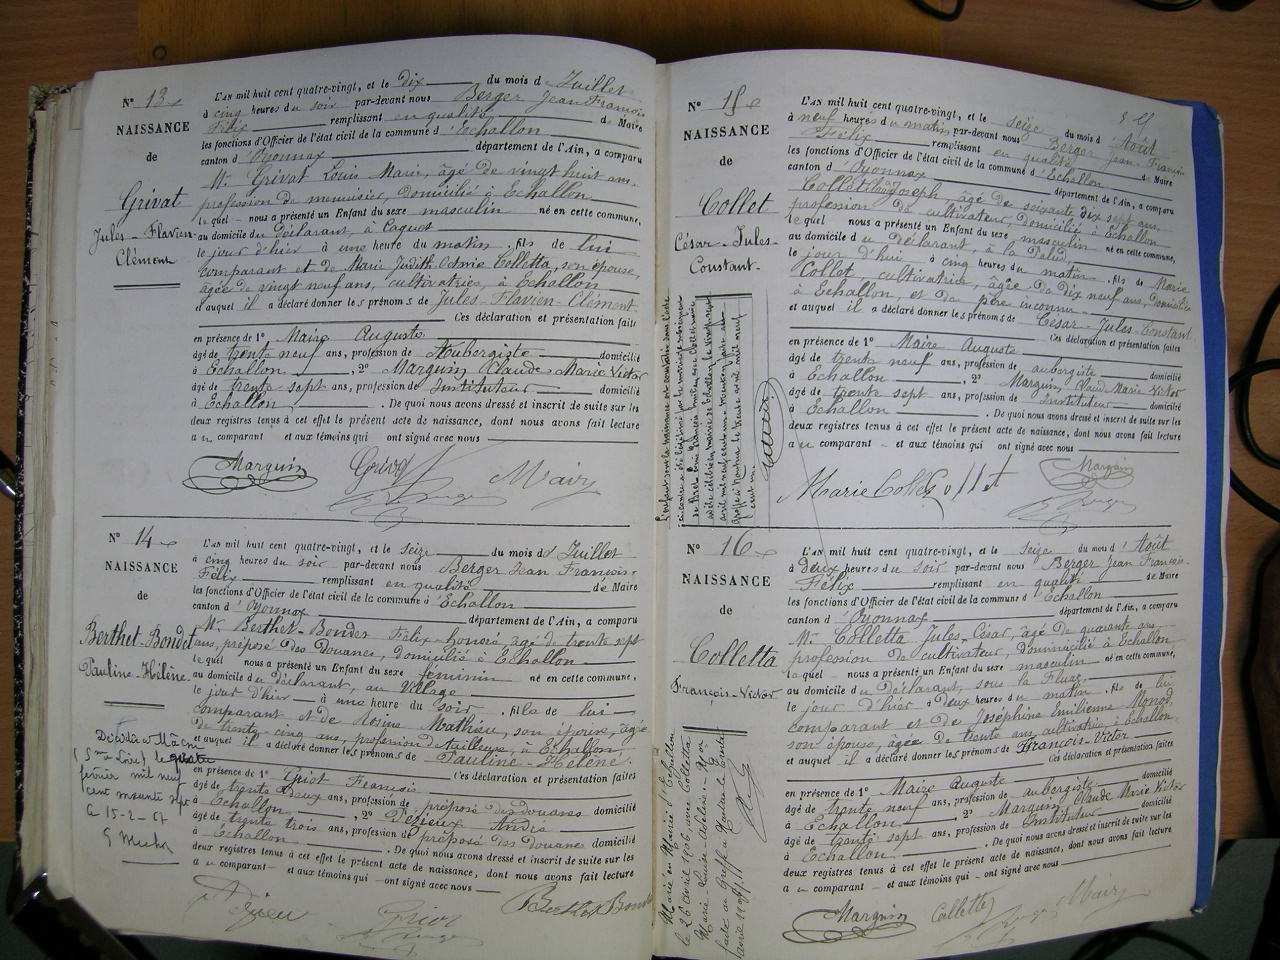 N° 13
NAISSANCE
de
Grivat
Jules-Flavien-
Clément
L'an mil huit cent quatre-vingt, et le dix du mois de Juillet
à cinq heures du soir par-devant nous Berger Jean François
Félix remplissant en qualité de Maire
les fonctions d'Officier de l'état civil de la commune d'Echallon
canton d'Oyonnax département de l'Ain, a comparu
Mr. Grivat Louis Marie, âgé de vingt huit ans,
profession de menuisier, domicilié à Echallon
lequel nous a présenté un Enfant du sexe masculin né en cette commune,
au domicile du Déclarant, à
le jour d'hier à une heure du matin, fils de lui
comparant et de Marie Judith Octavie Colletta, son épouse,
âgée de vingt neuf ans, cultivatrice, à Echallon
et auquel il a déclaré donner les prénoms de Jules-Flavien-Clément
Ces déclaration et présentation faites
en présence de 1° Maire Auguste
âgé de trente neuf ans, profession de Aubergiste domicilié
à Echallon, 2° Marguin Claude-Marie Victor
âgé de trente sept ans, profession de Instituteur domicilié
à Echallon. De quoi nous avons dressé et inscrit de suite sur les
deux registres tenus à cet effet le présent acte de naissance, dont nous avons fait lecture
au comparant et aux témoins qui ont signé avec nous
Marguin Grivat Maire
Berger
N° 14
NAISSANCE
de
Berthet-Bondet
Pauline-Hélène
Décédée à Mâcon
(Sne Loire) le quatre
février mil neuf
cent
Le 15-2-
L'an mil huit cent quatre-vingt, et le seize du mois de Juillet
à cinq heures du soir par-devant nous Berger Jean François-
Félix remplissant en qualité de Maire
les fonctions d'Officier de l'état civil de la commune d'Echallon
canton d'Oyonnax département de l'Ain, a comparu
Mr. Berthet-Bondet Félix-Honoré, âgé de trente sept
ans, préposé des Douanes, domicilié à Echallon
lequel nous a présenté un Enfant du sexe féminin né en cette commune,
au domicile du déclarant, au Village
le jour d'hier à une heure du soir, fille de lui
comparant et de Rosine Mathieu, son épouse, âgée
de trente cinq ans, profession de tailleuse, à Echallon
et auquel il a déclaré donner les prénoms de Pauline-Hélène
Ces déclaration et présentation faites
en présence de 1° Griot François
âgé de trente deux ans, profession de préposé des douanes domicilié
à Echallon, 2° André
âgé de trente trois ans, profession de préposé des Douanes domicilié
à Echallon. De quoi nous avons dressé et inscrit de suite sur les
deux registres tenus à cet effet le présent acte de naissance, dont nous avons fait lecture
au comparant et aux témoins qui ont signé avec nous
Griot Berthet Bondet
Berger
N° 15
NAISSANCE
de
Collet
César-Jules-
Constant
L'an mil huit cent quatre-vingt, et le seize du mois d'Août
à neuf heures du matin par-devant nous Berger Jean-François
Félix remplissant en qualité de Maire
les fonctions d'Officier de l'état civil de la commune d'Echallon
canton d'Oyonnax département de l'Ain, a comparu
Collet Joseph, âgé de soixante dix sept ans,
profession de cultivateur, domicilié à Echallon
lequel nous a présenté un Enfant du sexe masculin né en cette commune,
au domicile du Déclarant, à la
le jour d'hui à cinq heures du matin, fils de Marie
Collet, cultivatrice, âgée de dix neuf ans, domiciliée
à Echallon, et de père inconnu
et auquel il a déclaré donner les prénoms de César-Jules-Constant
Ces déclaration et présentation faites
en présence de 1° Maire Auguste
âgé de trente neuf ans, profession de aubergiste domicilié
à Echallon, 2° Marguin, Claude Marie Victor
âgé de trente sept ans, profession de Instituteur domicilié
à Echallon. De quoi nous avons dressé et inscrit de suite sur les
deux registres tenus à cet effet le présent acte de naissance, dont nous avons fait lecture
au comparant et aux témoins qui ont signé avec nous
Marie Collet Collet Marguin
Berger
N° 16
NAISSANCE
de
Colletta
François-Victor
Marié en Mairie d'Echallon
le 26 avril 1906 avec Colletta
Marie Louise
L'an mil huit cent quatre-vingt, et le seize du mois d'Août
à deux heures du soir par-devant nous Berger Jean François-
Félix remplissant en qualité de Maire
les fonctions d'Officier de l'état civil de la commune d'Echallon
canton d'Oyonnax département de l'Ain, a comparu
Mr. Colletta Jules-César, âgé de quarante ans
profession de cultivateur, domicilié à Echallon
lequel nous a présenté un Enfant du sexe masculin né en cette commune,
au domicile du Déclarant, sous la
le jour d'hier à deux heures du matin, fils de lui
comparant et de Joséphine Emilienne Monod
son épouse, âgée de trente ans, cultivatrice, à Echallon
et auquel il a déclaré donner les prénoms de François-Victor
Ces déclaration et présentation faites
en présence de 1° Maire Auguste
âgé de trente neuf ans, profession de aubergiste domicilié
à Echallon, 2° Marguin, Claude Marie Victor
âgé de trente sept ans, profession de Instituteur domicilié
à Echallon. De quoi nous avons dressé et inscrit de suite sur les
deux registres tenus à cet effet le présent acte de naissance, dont nous avons fait lecture
au comparant et aux témoins qui ont signé avec nous
Marguin Colletta Maire
Berger